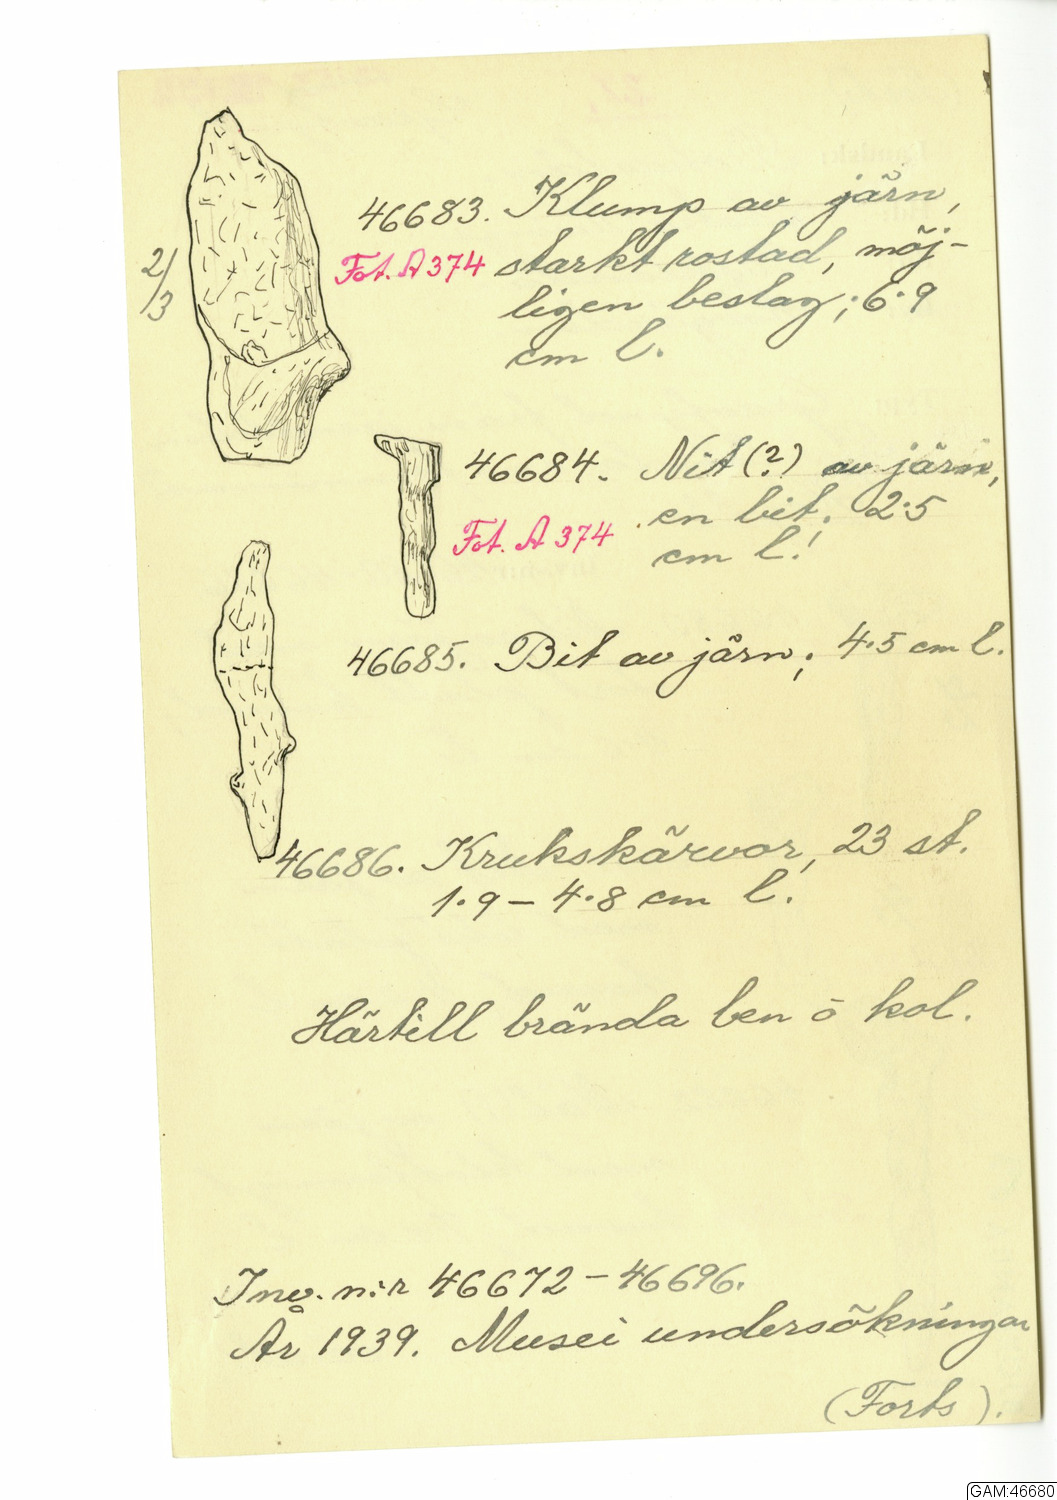 46683. Klump av järn,
2/3 Fot. A 374 starkt rostad, möj-
ligen beslag; 6.9
cm l.
46684. Nit (?) av järn,
Fot. A 374 en bit; 2.5
cm l.
46685. Bit av järn; 4.5 cm l.
46686. Krukskärvor, 23 st.
1.9 – 4.8 cm l.
Härtill brända ben o kol.
Inv. n:r 46672 – 46696.
År 1939. Musei undersökningar
(Forts).
GAM:46680